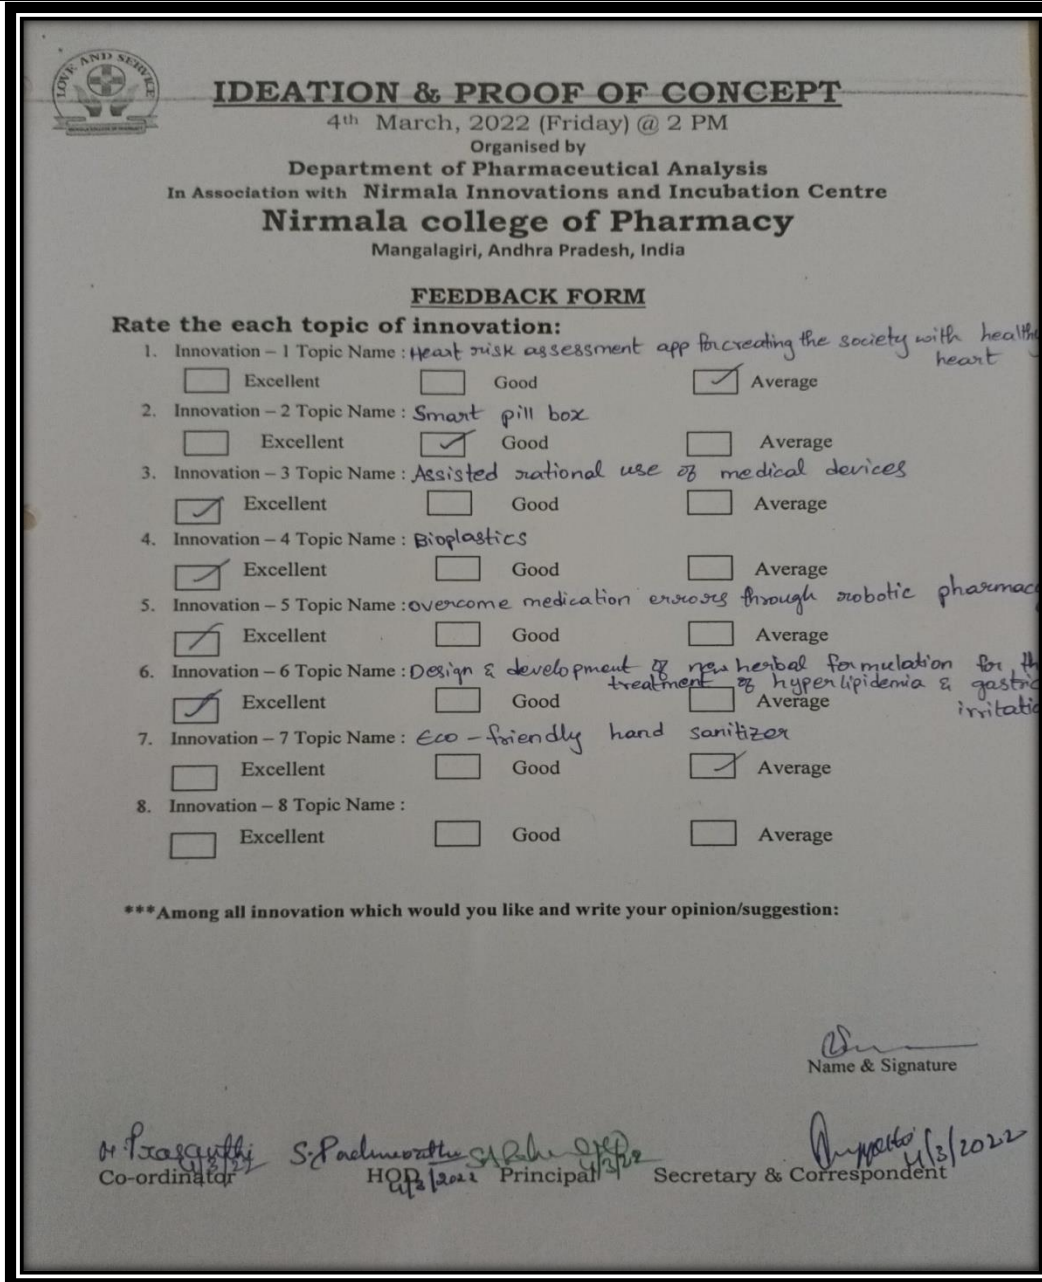 LOVE AND SERVICE
IDEATION & PROOF OF CONCEPT
4th March, 2022 (Friday) @ 2 PM
Organised by
Department of Pharmaceutical Analysis
In Association with Nirmala Innovations and Incubation Centre
Nirmala college of Pharmacy
Mangalagiri, Andhra Pradesh, India
FEEDBACK FORM
Rate the each topic of innovation:
1. Innovation – 1 Topic Name : Heart risk assessment app for creating the society with healthy
heart
Excellent Good Average
2. Innovation – 2 Topic Name : Smart pill box
Excellent Good Average
3. Innovation – 3 Topic Name : Assisted rational use of medical devices
Excellent Good Average
4. Innovation – 4 Topic Name : Bioplastics
Excellent Good Average
5. Innovation – 5 Topic Name : overcome medication errors through robotic pharmac
Excellent Good Average
6. Innovation – 6 Topic Name : Design & development of new herbal formulation for th
treatment of hyperlipidemia & gastric
irritatio
Excellent Good Average
7. Innovation – 7 Topic Name : Eco-friendly hand sanitizer
Excellent Good Average
8. Innovation – 8 Topic Name :
Excellent Good Average
***Among all innovation which would you like and write your opinion/suggestion:
Name & Signature
4/3/22 4/3/2022 4/3/22 4/3/2022
Co-ordinator HOD Principal Secretary & Correspondent